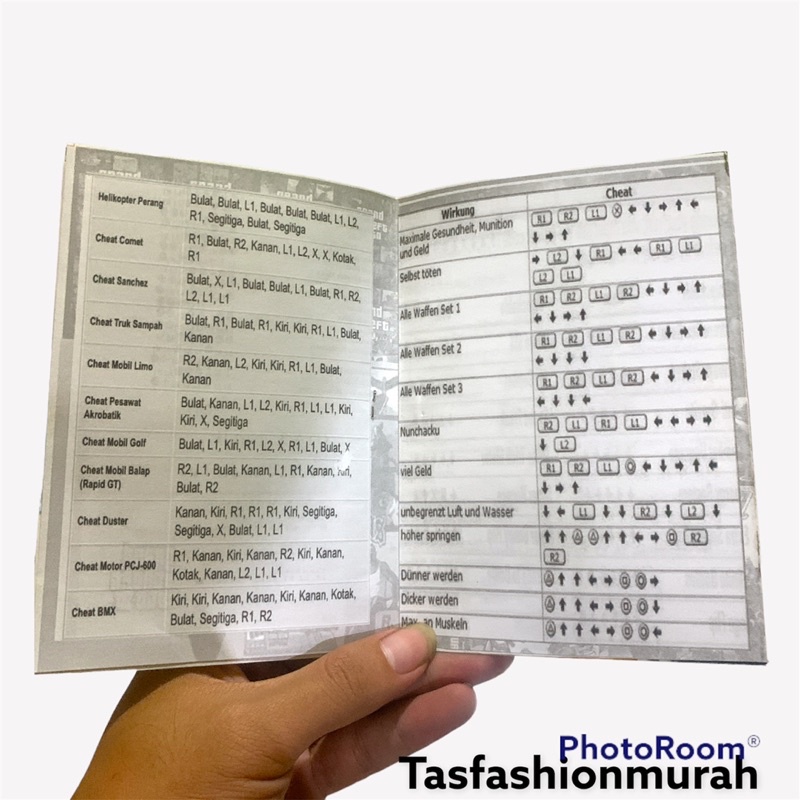 Helikopter Perang
Bulat, Bulat, L1, Bulat, Bulat, Bulat, L1, L2,
R1, Segitiga, Bulat, Segitiga
Cheat Comet
R1, Bulat, R2, Kanan, L1, L2, X, X, Kotak,
R1
Cheat Sanchez
Bulat, X, L1, Bulat, Bulat, L1, Bulat, R1, R2,
L2, L1, L1
Cheat Truk Sampah
Bulat, R1, Bulat, R1, Kiri, Kiri, R1, L1, Bulat,
Kanan
Cheat Mobil Limo
R2, Kanan, L2, Kiri, Kiri, R1, L1, Bulat,
Kanan
Cheat Pesawat
Akrobatik
Bulat, Kanan, L1, L2, Kiri, R1, L1, L1, Kiri,
Kiri, X, Segitiga
Cheat Mobil Golf
Bulat, L1, Kiri, R1, L2, X, R1, L1, Bulat, X
Cheat Mobil Balap
(Rapid GT)
R2, L1, Bulat, Kanan, L1, R1, Kanan, Kiri,
Bulat, R2
Cheat Duster
Kanan, Kiri, R1, R1, R1, Kiri, Segitiga,
Segitiga, X, Bulat, L1, L1
Cheat Motor PCJ-600
R1, Kanan, Kiri, Kanan, R2, Kiri, Kanan,
Kotak, Kanan, L2, L1, L1
Cheat BMX
Kiri, Kiri, Kanan, Kanan, Kiri, Kanan, Kotak,
Bulat, Segitiga, R1, R2
Wirkung Cheat
Maximale Gesundheit, Munition
und Geld
R1 R2 L1 ⓧ ← ↓ → ↑ ←
↓ → ↑
Selbst töten
→ L2 ↓ R1 ← ← R1 L1
L2 L1
Alle Waffen Set 1
R1 R2 L1 R2 ← ↓ → ↑
← ↓ → ↑
Alle Waffen Set 2
R1 R2 L1 R2 ← ↓ → ↑
← ↓ ↓ ↓
Alle Waffen Set 3
R1 R2 L1 R2 ← ↓ → ↑
← ↓ ↓ ←
Nunchacku
R2 L1 R1 L1 ← ← → →
↓ L2
viel Geld
R1 R2 L1 ← ↓ → ↑ ←
↓ → ↑
unbegrenzt Luft und Wasser
↓ ← L1 ↓ ↓ R2 ↓ L2 ↓
höher springen
↑ ↑ ← → R2
R2
Dünner werden
↑ ↑ ← → →
Dicker werden
↑ ↑ ← → ↓
an Muskeln
↑ ↑ ← → ←
PhotoRoom®
Tasfashionmurah